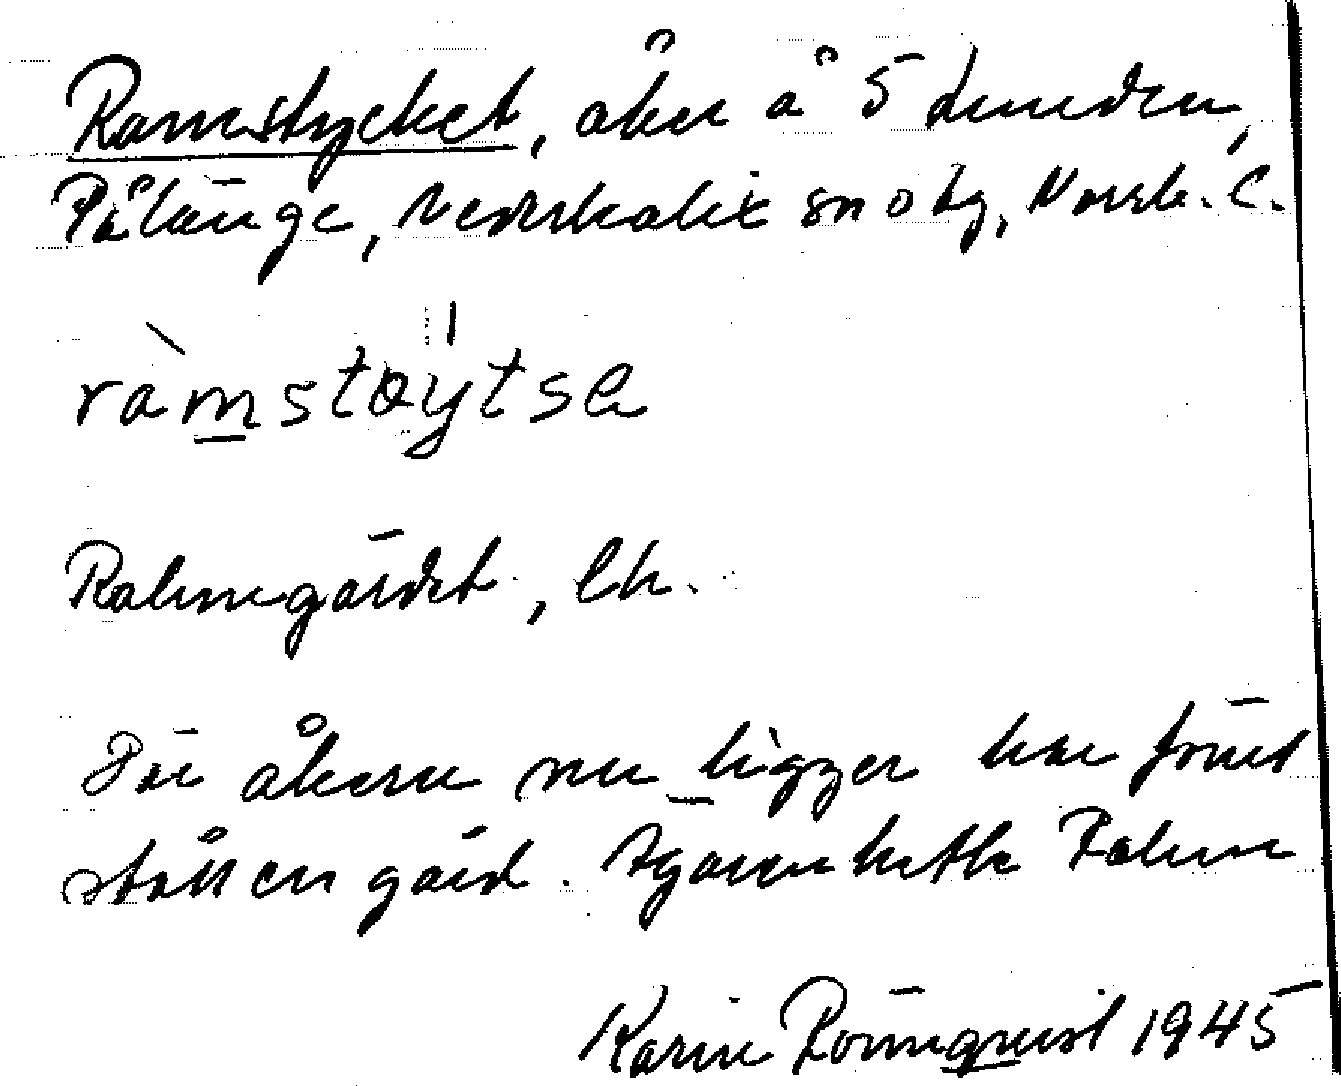 Ramstycket, åker å 5 tunnden,
Pålänge, Nederkalix sn o tg, Norrb. l.
ràmstøytsa
Rahmgärdet, lh.
Där åkern nu ligger har förut
stått en gård. Ägaren hette Rahm
Karin Rönnqvist 1945